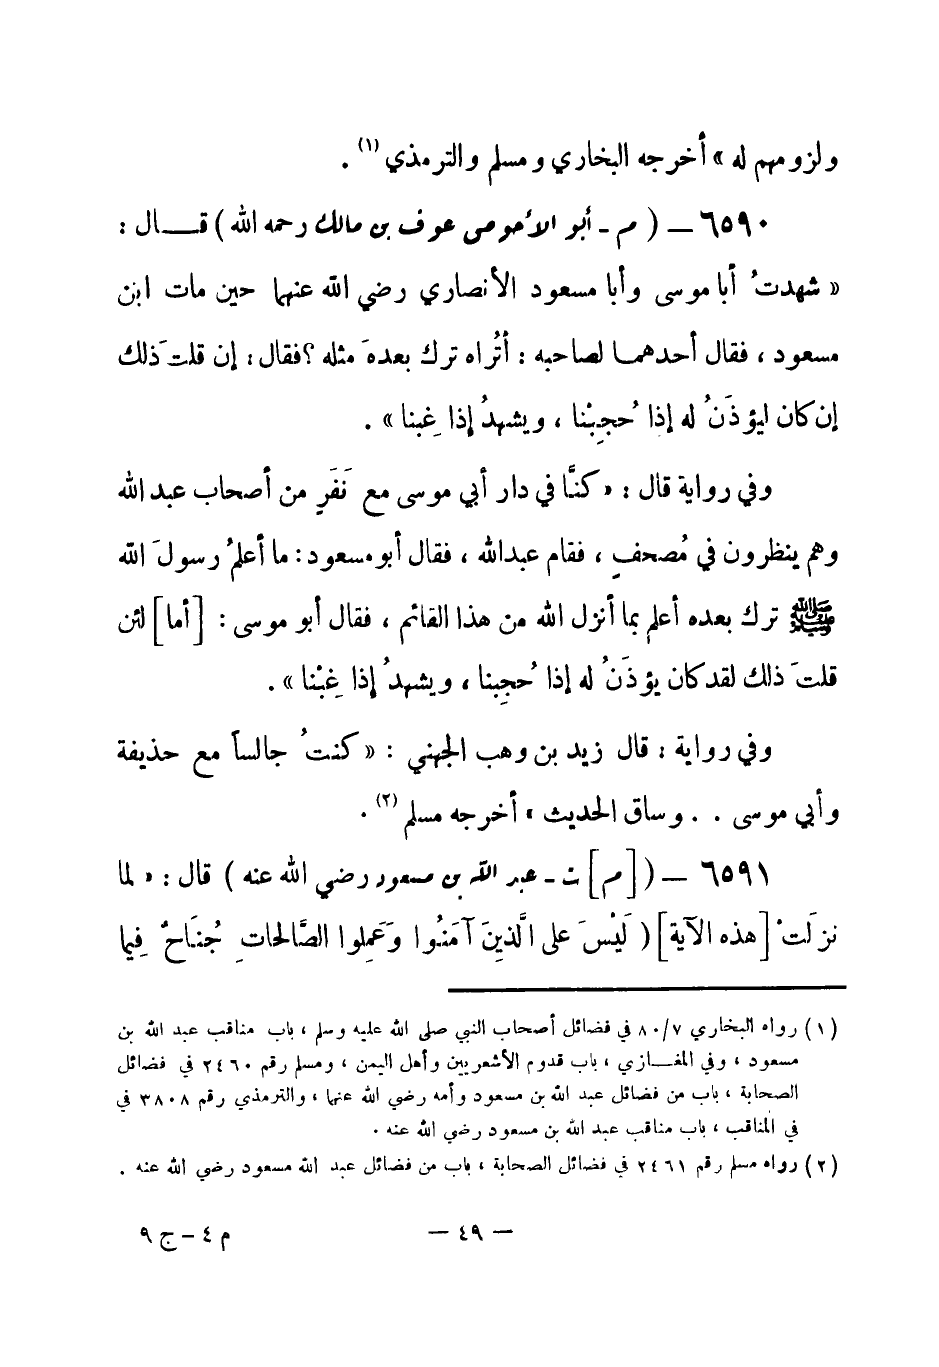 ولزومهم له » أخرجه البخاري ومسلم والترمذي (١) .
٦٥٩٠ ـ ( م ـ أبو الأحوص عوف بن مالك رحمه الله ) قـــال :
« شهدتُ أبا موسى وأبا مسعود الأنصاري رضي الله عنهما حين مات ابن
مسعود ، فقال أحدهمـا لصاحبه : أتُراه ترك بعدهَ مثله ؟ فقال : إن قلتَ ذلك
إن كان ليؤذَنُ له إذا حُجِبْنا ، ويشهدُ إذا غِبنا » .
وفي رواية قال : « كنَّا في دار أبي موسى مع نَفَرٍ من أصحاب عبد الله
وهم ينظرون في مُصحفٍ ، فقام عبدالله ، فقال أبو مسعود : ما أعلمُ رسولَ الله
ﷺ ترك بعده أعلم بما أنزل الله من هذا القائم ، فقال أبو موسى : [ أما ] لئن
قلتَ ذلك لقد كان يؤذَنُ له إذا حُجِبنا ، ويشهدُ إذا غِبْنا » .
وفي رواية : قال زيد بن وهب الجهني : « كنتُ جالساً مع حذيفة
وأبي موسى . . وساق الحديث » أخرجه مسلم (٢) .
٦٥٩١ ـ ( [ م ] ت ـ عبد الله بن مسعود رضي الله عنه ) قال : « لما
نزلَتْ [ هذه الآية ] ( لَيْسَ على الَّذِينَ آمَنُوا وَعَمِلوا الصَّالحاتِ جُنَاحٌ فِيما
(١) رواه البخاري ٨٠/٧ في فضائل أصحاب النبي صلى الله عليه وسلم ، باب مناقب عبد الله بن
مسعود ، وفي المغـــازي ، باب قدوم الأشعريين وأهل اليمن ، ومسلم رقم ٢٤٦٠ في فضائل
الصحابة ، باب من فضائل عبد الله بن مسعود وأمه رضي الله عنهما ، والترمذي رقم ٣٨٠٨ في
في المناقب ، باب مناقب عبد الله بن مسعود رضي الله عنه .
(٢) رواه مسلم رقم ٢٤٦١ في فضائل الصحابة ، باب من فضائل عبد الله مسعود رضي الله عنه .
ـ ٤٩ ـ
م ٤ ـ ج ٩